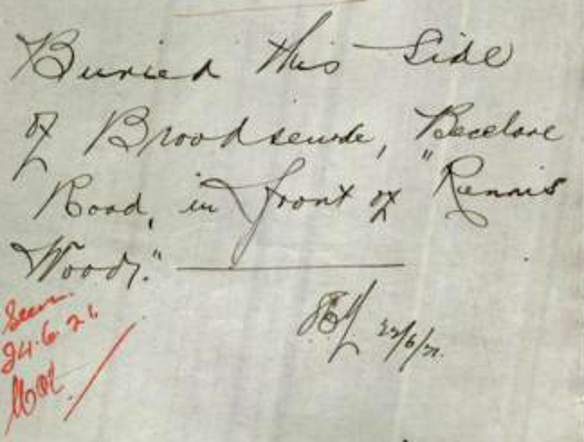 Buried this side
of Broodseinde, Becelare
Road, in front of "Rennis
Wood".
23/6/21.
Seen.
24.6.21.